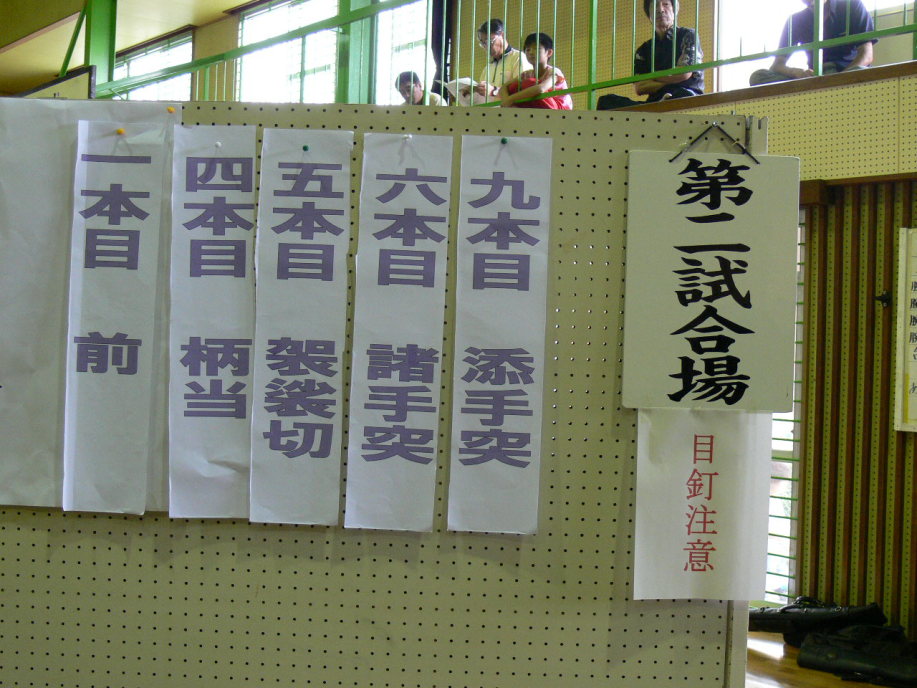 第二試合場
目釘注意
九本目 添手突
六本目 諸手突
五本目 袈裟切
四本目 柄当
一本目 前